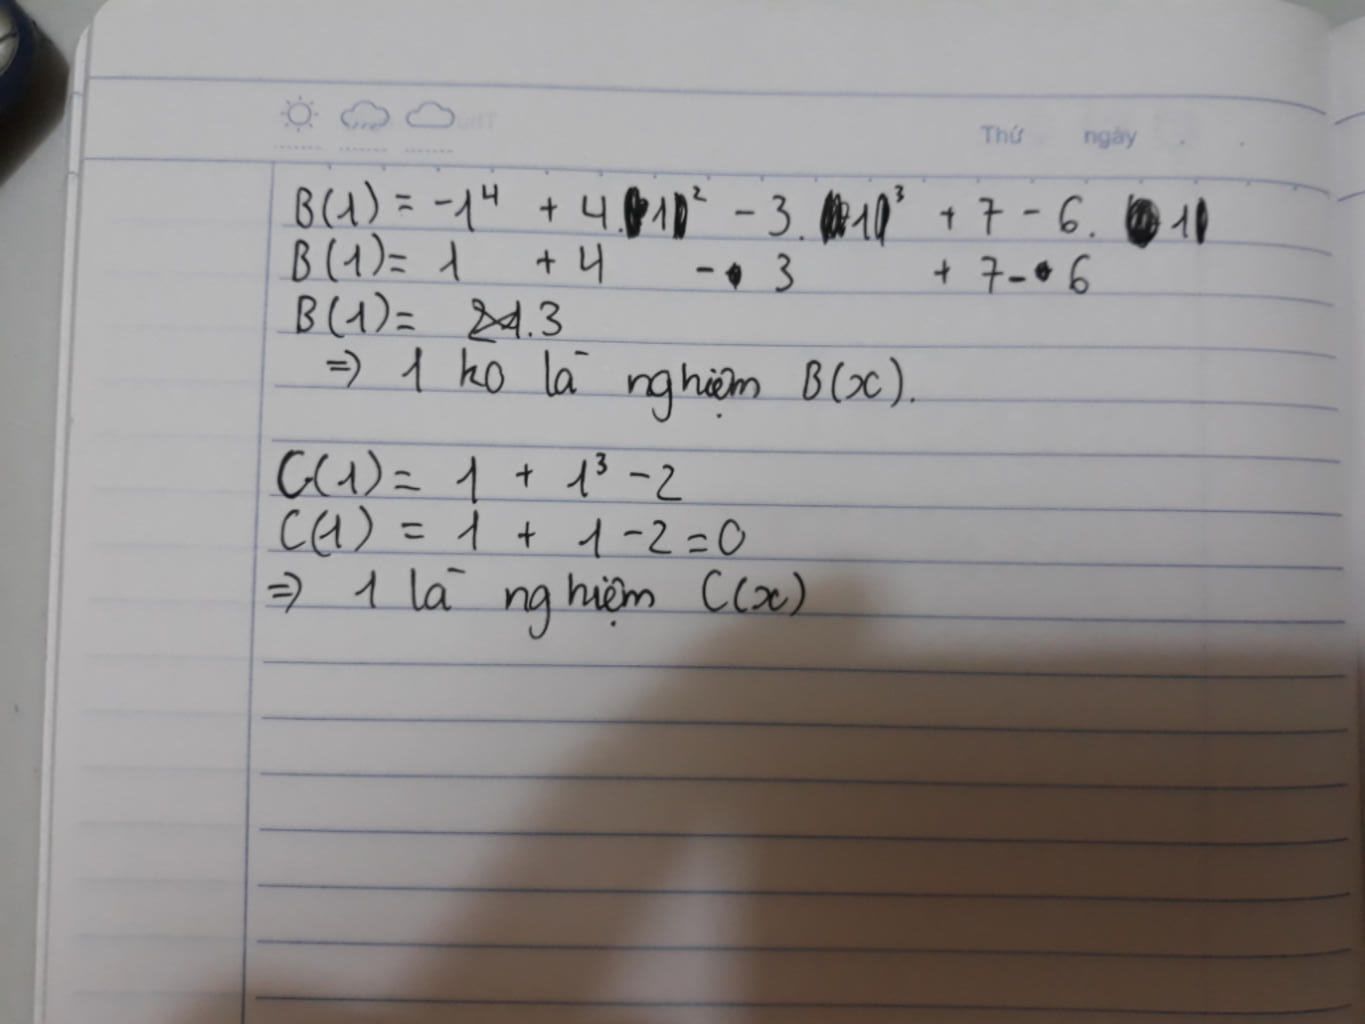 Thứ ngày
B(1) = -1⁴ + 4.1² - 3.1³ + 7 - 6.1
B(1) = 1 + 4 - 3 + 7 - 6
B(1) = 3
=> 1 ko là nghiệm B(x).
C(1) = 1 + 1³ - 2
C(1) = 1 + 1 - 2 = 0
=> 1 là nghiệm C(x)